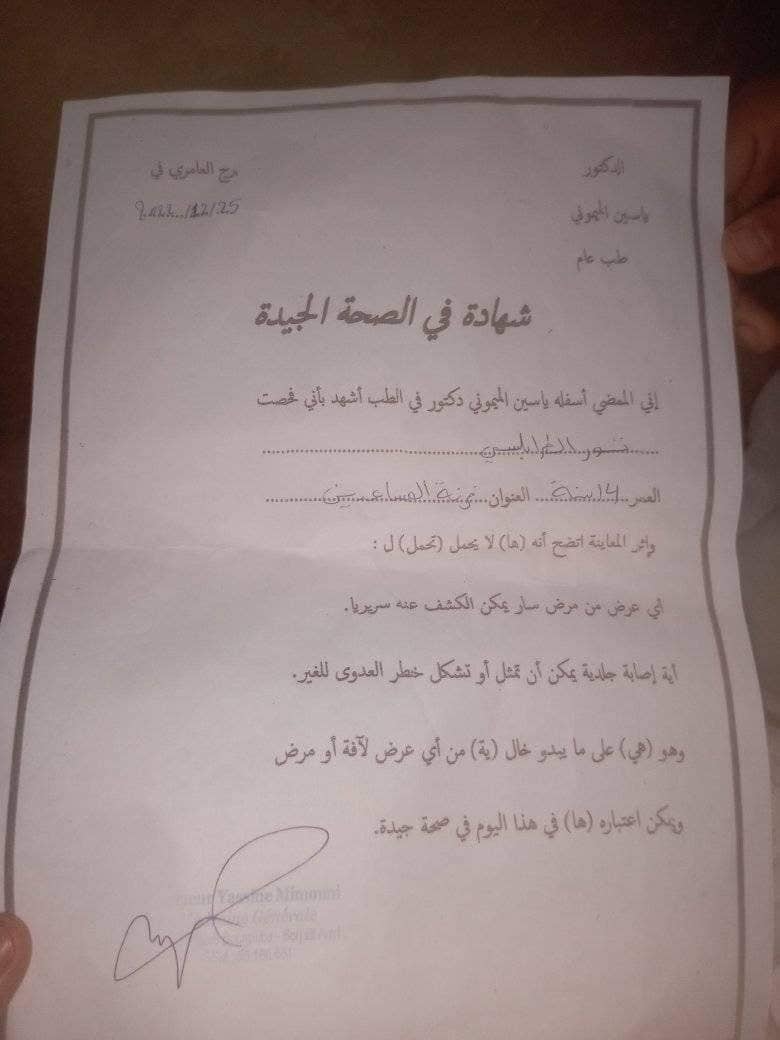 الدكتور
برج العامري في
ياسين الميموني
2022/12/25
طب عام
شهادة في الصحة الجيدة
إني الممضي أسفله ياسين الميموني دكتور في الطب أشهد بأني فحصت
نور الطرابلسي
العمر 14 سنة العنوان
وإثر المعاينة اتضح أنه (ها) لا يحمل (تحمل) ل :
اي عرض من مرض سار يمكن الكشف عنه سريريا.
أية إصابة جلدية يمكن أن تمثل أو تشكل خطر العدوى للغير.
وهو (هي) على ما يبدو خال (ية) من أي عرض لآفة أو مرض
ويمكن اعتباره (ها) في هذا اليوم في صحة جيدة.
Yassine Mimouni
Générale